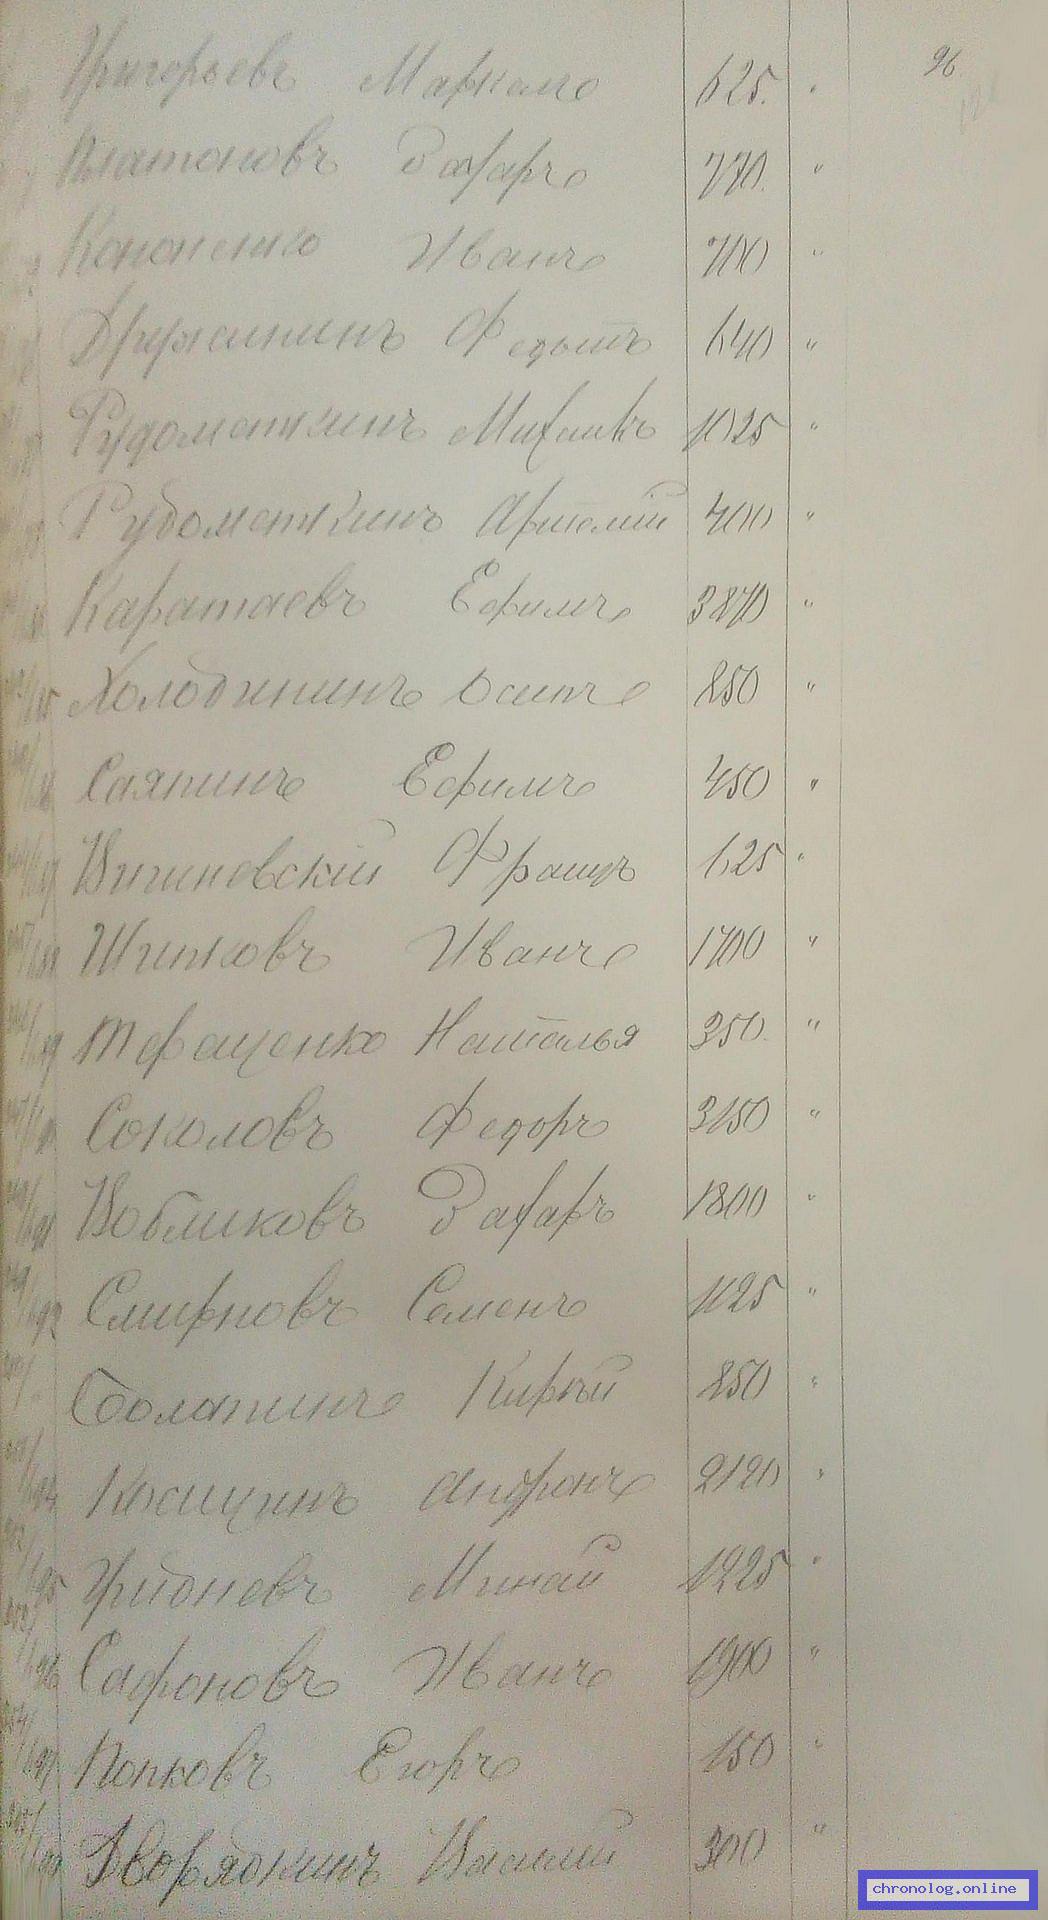 96
Григорьевъ Маркелъ 625. "
Платоновъ Захаръ 770. "
Кононенко Иванъ 700 "
Дружининъ Федотъ 640 "
Рудометкинъ Михаилъ 1025 "
Рудометкинъ Артемій 400 "
Каратаевъ Ефимъ 3870 "
Холодининъ Осипъ 250 "
Саяпинъ Ефимъ 450 "
Францъ 625 "
Шишковъ Иванъ 1700 "
Терещенко Наталья 350. "
Соколовъ Федоръ 3150 "
Вобликовъ Захаръ 1800 "
Смирновъ Семенъ 1125 "
Болапинъ 250 "
Косицинъ Андронъ 2120 "
Минай 1225 "
Сафоновъ Иванъ 1900 "
Попковъ Егоръ 150 "
Дворядкинъ Василій 300 "
chronolog.online